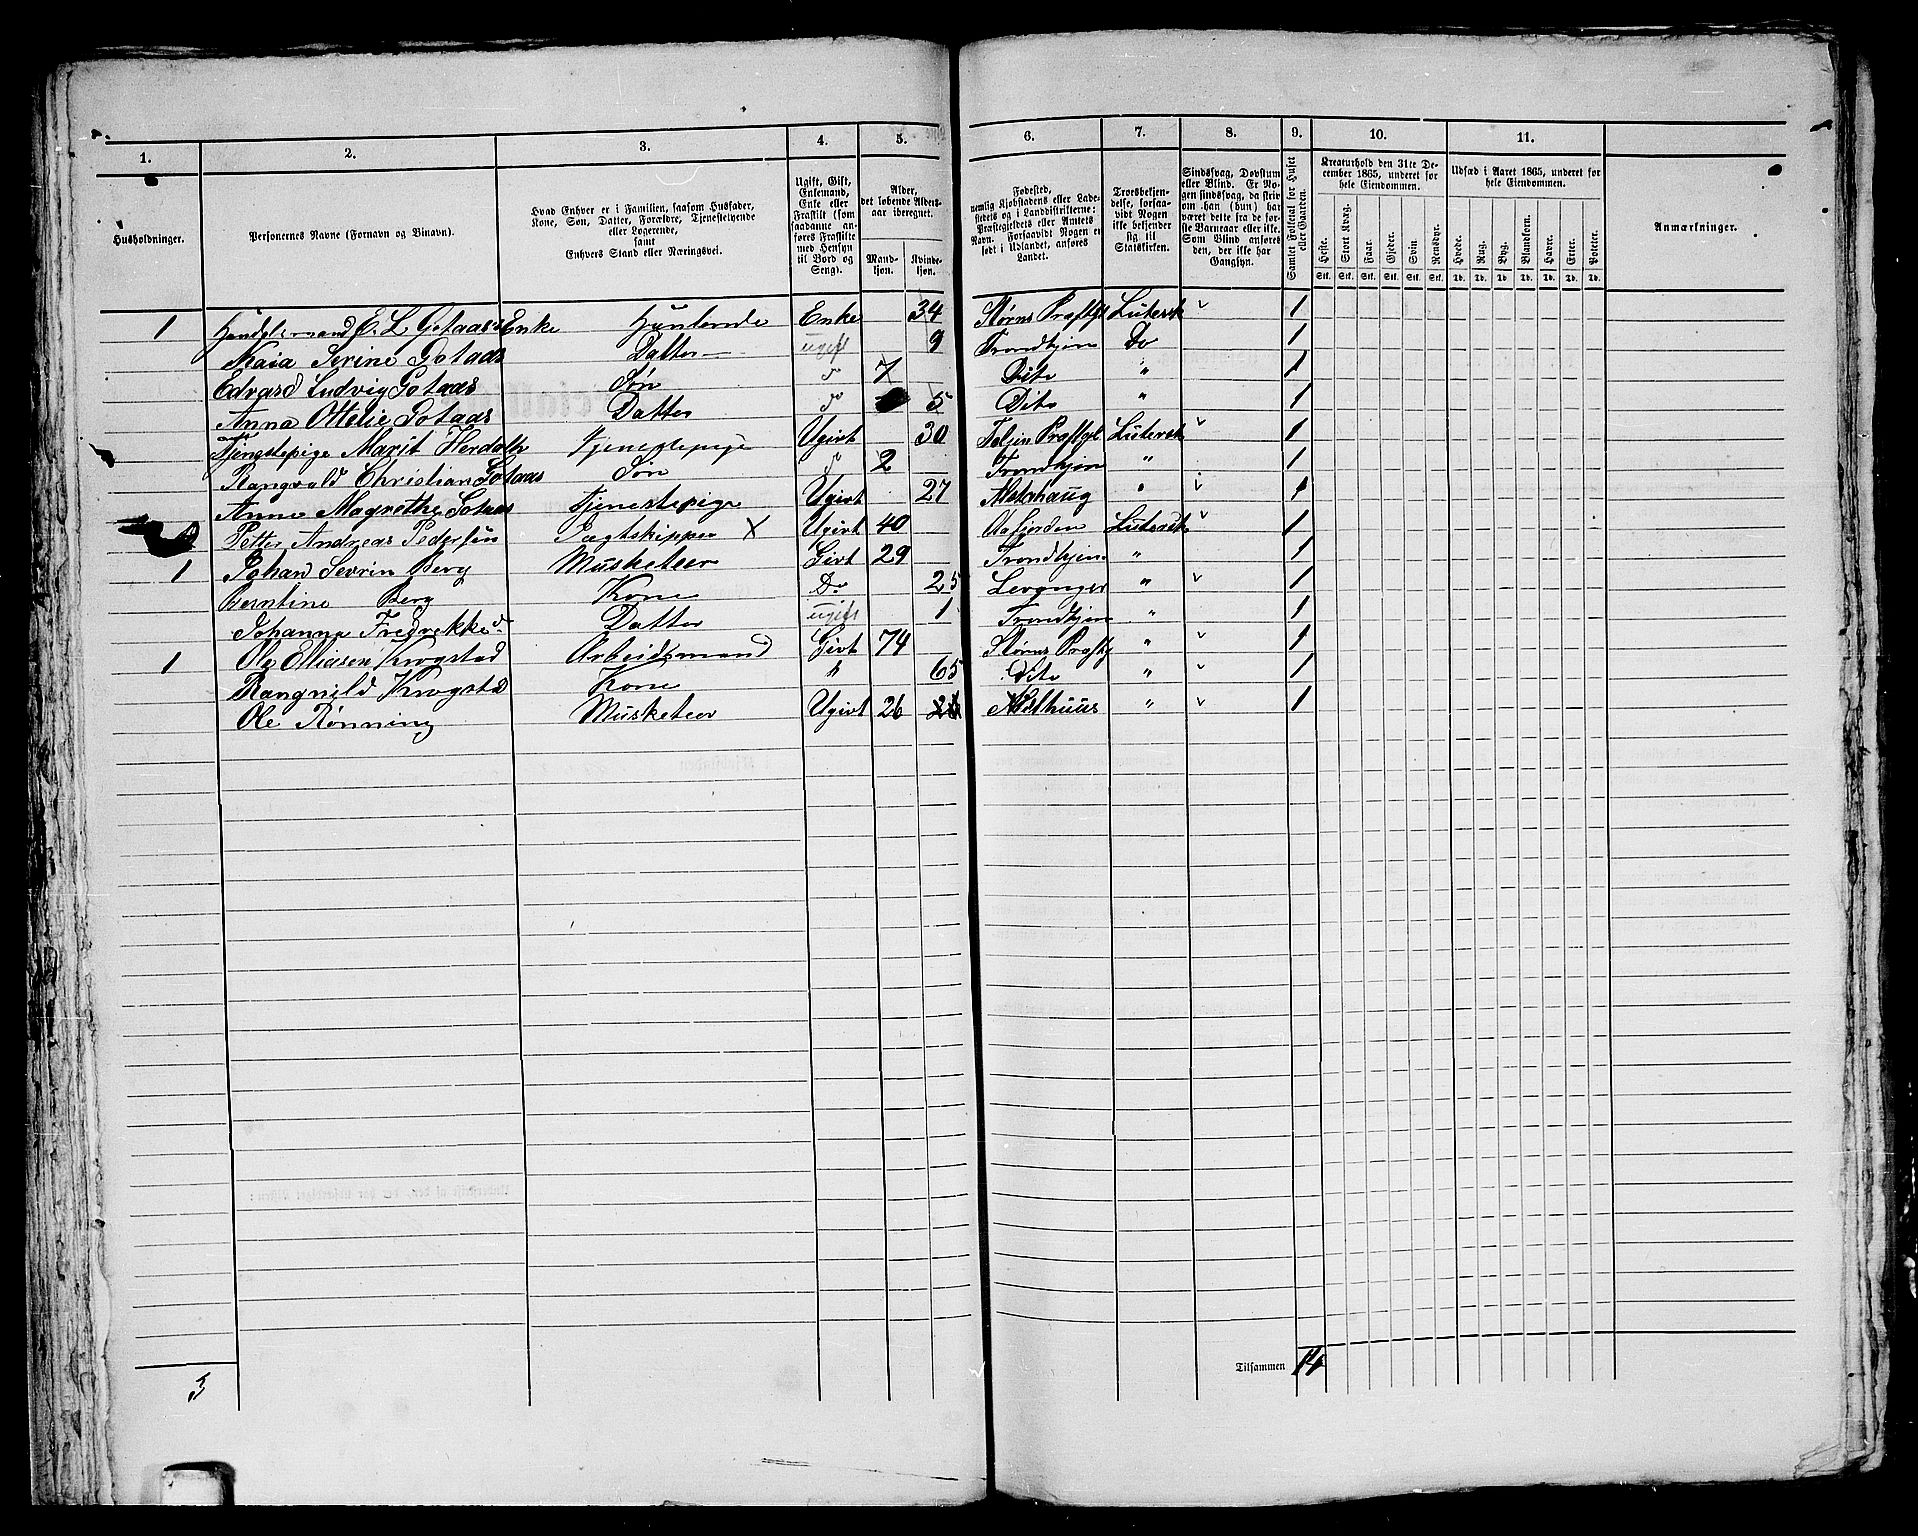 1. 2. 3. 4. 5. 6. 7. 8. 9. 10. 11.
Husholdninger.
Personernes Navne (Fornavn og Binavn).
Hvad Enhver er i Familien, saasom Husfader,
Kone, Søn, Datter, Forældre, Tjenestetyende
eller Logerende,
samt
Enhvers Stand eller Næringsvei.
Ugift, Gift,
Enkemand,
Enke eller
Fraskilt (som
saadanne an-
føres Fraskilte
med Hensyn
til Bord og
Seng).
Alder,
det løbende Alders-
aar iberegnet.
Mand-
kjøn.
Kvinde-
kjøn.
Fødested,
nemlig Kjøbstadens eller Lade-
stedets og i Landdistrikterne:
Præstegjeldets eller Amtets
Navn. Forsaavidt Nogen er
født i Udlandet, anføres
Landet.
Troesbekjen-
delse, forsaa-
vidt Nogen
ikke bekjender
sig til
Statskirken.
Sindssvag, Døvstum
eller Blind. Er No-
gen sindssvag, da skriv
om han (hun) har
været dette fra de før-
ste Barneaar eller ikke.
Som Blind anføres
den, der ikke har
Gangsyn.
Samlet Folketal for Huset
eller Gaarden.
Kreaturhold den 31te De-
cember 1865, underet for
hele Eiendommen.
Heste. Stort Kvæg. Faar. Gjeder. Svin. Rensdyr.
Stk. Stk. Stk. Stk. Stk. Stk.
Udsæd i Aaret 1865, underet for
hele Eiendommen.
Hvede. Rug. Byg. Blandkorn. Havre. Erter. Poteter.
Td. Td. Td. Td. Td. Td. Td.
Anmærkninger.
1 Handelsmand E. L. Gotaas's Enke Huuslende Enke 34 Størns Præstgl Lutersk v 1
Kaia Serine Gotaas Datter ugift 9 Trondhjem Do 1
Edvard Ludvig Gotaas Søn do 7 Dito " 1
Anna Ottelie Gotaas Datter do 5 Dito " 1
Tjenestepige Marit Herdalh Tjenestepige Ugivt 30 Præstgl Lutersk v 1
Rangvald Christian Gotaas Søn do 2 Trondhjem " 1
Anne Magrethe Gotaas Tjenestepige Ugivt 27 Alstahaug " v 1
Petter Andreas Pedersen Jægtskipper X Ugivt 40 Aafjorden Lutersk v 1
1 Johan Sevrin Berg Musketeer Givt 29 Trondhjem " 1
Berntine Berg Kone Do 25 Levanger " v 1
Johanna Fredrekke do Datter ugift 1 Trondhjem " 1
1 Ole Elliasen Krogstad Arbeidsmand Givt 74 Størns Præstg " v 1
Rangnild Krogstad Kone " 65 Dito " v 1
Ole Rønning Musketeer Ugivt 26 26 Melhuus " v 1
Tilsammen 14
3